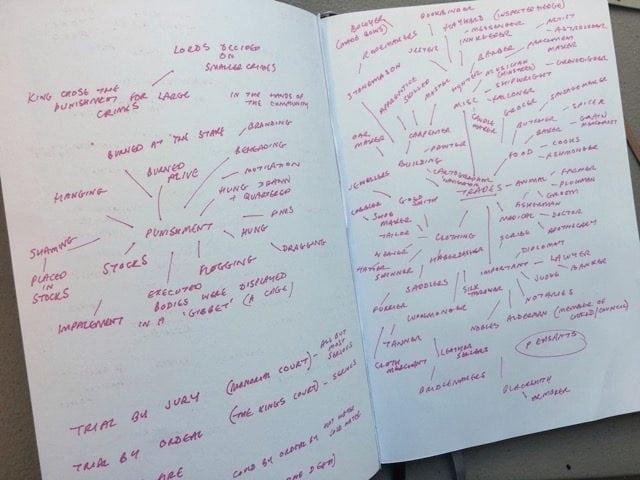 LORDS DECIDED
ON
SMALLER CRIMES
KING CHOSE THE
PUNISHMENT FOR LARGE
CRIMES
IN THE HANDS OF
THE COMMUNITY
BURNED AT THE STAKE
BRANDING
BURNED
ALIVE
BEHEADING
MUTILATION
HANGING
HUNG DRAWN
+ QUARTERED
FINES
PUNISHMENT
HUNG
SHAMING
DRAGGING
PLACED
IN
STOCKS
STOCKS
FLOGGING
EXECUTED
BODIES WERE DISPLAYED
IN A 'GIBBET' (A CAGE)
IMPALEMENT
TRIAL BY JURY (MANORIAL COURT) - ALL BUT
MOST
SERIOUS
TRIAL BY ORDEAL (THE KINGS COURT) - SERIOUS
FIRE
COULD BE ORDEAL BY HOT WATER
COLD WATER
THE DEATH)
BOOKBINDER
ROPEMAKERS
JESTER
HAYWARD
MESSENGER
INNKEEPER
STONEMASON
APPRENTICE
SKILLED
MASTER
HUNTER
BARBER
PARCHMENT
MAKER
ARTIST
ASTROLOGER
MUSICIAN
(MINSTRELS)
SHIPWRIGHT
FALCONER
MISC
CANDLE
MAKER
GROCER
OAR
MAKER
CARPENTER
PAINTER
BUTCHER
BAKER
SPICER
GRAIN
MERCHANT
FOOD
COOKS
FISHMONGER
JEWELLERS
BUILDING
CARTOGRAPHER
TRADES
ANIMAL
FARMER
PLOWMAN
GROOM
GOLD
SMITH
SHOE
MAKER
TAILOR
FISHERMAN
MEDICAL
DOCTOR
APOTHECARY
CLOTHING
SCRIBE
WEAVER
HABERDASHER
DIPLOMAT
SKINNER
SADDLERS
IMPORTANT
LAWYER
JUDGE
BANKER
FURRIER
WOOLMONGER
NOTARIES
NOBLES
ALDERMAN (MEMBER OF
TANNER
LEATHER
SELLERS
PEASANTS
CLOTH
MERCHANT
BLACKSMITH